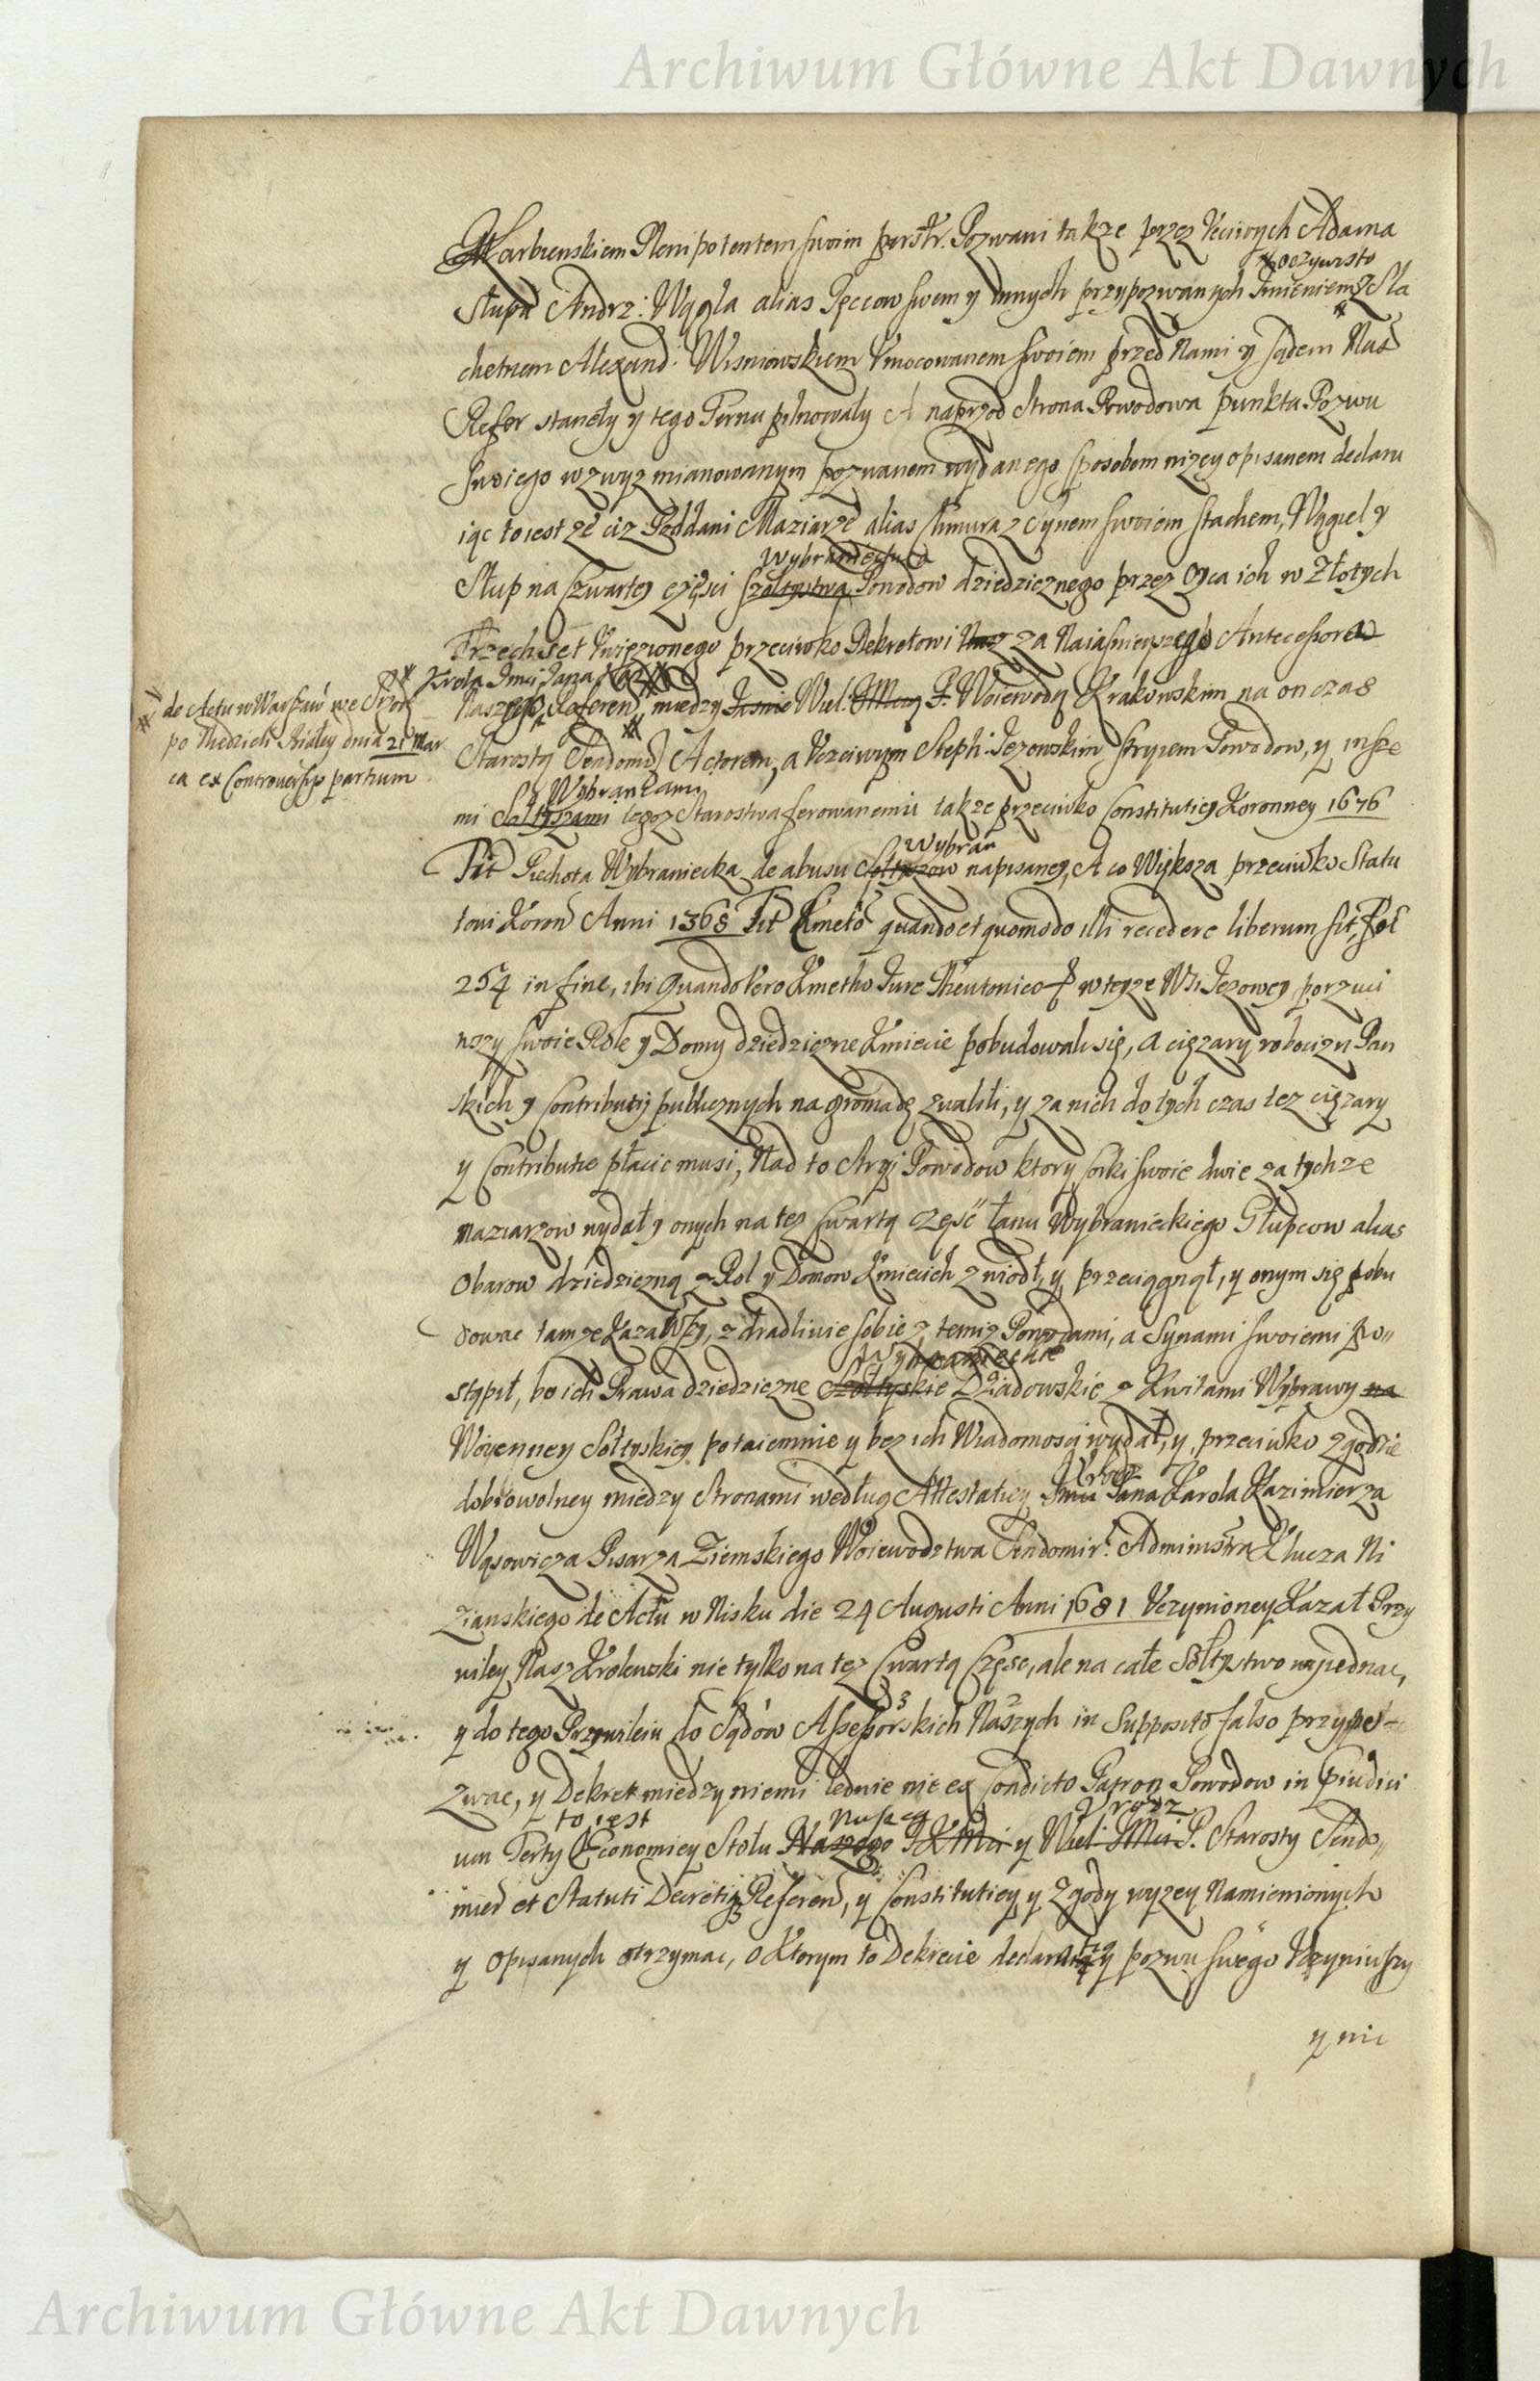 Archiwum Główne Akt Dawnych
Skarbienskiem Plenipotentem swoim perstr. Pozwani także przez Uczciwych Adama
oczywisto
Słupa Andrz: Węgla alias swem y innych przypozwanych Imieniem z Sla
chetnem Alexand: Wisniowskiem Umocowanem swoiem przed Nami y sądem Nas
Refer stanęły y tego Termu pilnowały A naprzod Strona Powodowa punkta Pozwu
swoiego wzwyz mianowanym pozwanem wydanego sposobem nizey opisanem declaru
iąc to iest że ciz Poddani Maziarze alias Chmura z Synem swoiem Stachem, Węgiel y
Wybraniectwa
Słup na Czwartey części szołtystwa Powodow dziedzicznego przez Oyca ich w Złotych
Trzechset Uwięzionego przeciwko Dekretowi Nas za Naiasnieyszego Antecessora
Krola Jmci Jana Kaz
Naszego Referen, między Jasnie Wiel. P. Woiewodą Krakowskim na on czas
de Actu w Warszaw we Srzod
po Niedzieli Białey dnia 21 Mar
ca ex Controversiis partium
Starostą Sendomir Actorem, a Uczciwym Steph. Jezowskim stryiem Powodow, y insze
Wybrańcami
mi Sołtyszami tegoz Starostwa ferowanemu także przeciwko Constitutiey Koronney 1676
Wybrań
Tit Piechota Wybraniecka de abusu Sołtyszow napisaney, A co Większa przeciwko Statu
towi Koron Anni 1368 Tit Kmeto quando et quomodo illi recedere liberum sit, fol
254 in fine, ibi Quando Vero Kmetho Jure Theutonico w teyze Wsi Jezowey porzuci
wszy swoie Role y Domy dziedziczne Kmiecie pobudowali się, a ciężary robocizn Pan
skich y Contributiy publicznych na gromadę zwalili, y za nich do tych czas tez ciężary
y Contributie płacić musi, Nad to Stryi Powodow ktory Corki swoie dwie za tychze
maziarzow wydał y onych na tez Cwartą część łanu Wybranieckiego Głupcow alias
Obarow dziedziczną z Rol y Domow Kmiecich zwiodł, y przeciągnął, y onym się pobu
dować tamze Kazawszy, zdradliwie sobie z temiz Powodami, a Synami swoiemi po„
Wybranieckie
stąpił, bo ich Prawa dziedziczne Szołtyskie Dziadowskie z Kwitami Wyprawy na
Woyenney Sołtyskiey potaiemnie y bez ich Wiadomosci wydał, y przeciwko zgodzie
Urodz
dobrowolney między Stronami według Attestatiey Jmci Pana Karola Kazimierza
Wąsowicza Pisarza Ziemskiego Woiewodztwa Sendomir. Administra Klucza Ni
zianskiego de Actu w Nisku die 24 Augusti Anni 1681 Uczynioney Kazał Przy
wiley Nasz Krolewski nie tylko na tez Cwartą Część, ale na całe Sołtystwo wyiednać,
y do tego Przywileiu do Sądow Assessorskich Naszych in Supposito falso przypo
zwać, y Dekret między niemi ledwie nie ex Condicto Patron Powodow in Piudici
to iest Naszey Urodz
um Tertij Economiey Stołu Naszego JKMci y Wiel. JMci P. Starosty Sendo„
mier et Statuti Decretiq Referen, y Constitutiey y Zgody wyzey Namienionych
y opisanych otrzymać, o Ktorym to Dekrecie declaratią y pozwu swego Uczyniwszy
y nie
Archiwum Główne Akt Dawnych